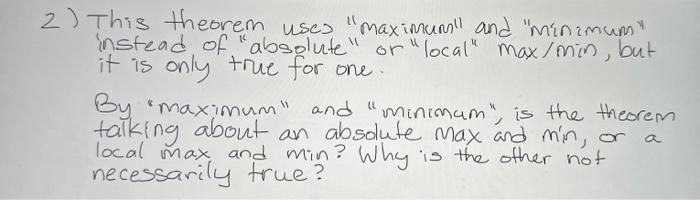 2) This theorem uses "maximum" and "minimum"
instead of "absolute" or "local" max/min, but
it is only true for one.
By "maximum" and "minimum", is the theorem
talking about an absolute max and min, or a
local max and min? Why is the other not
necessarily true?